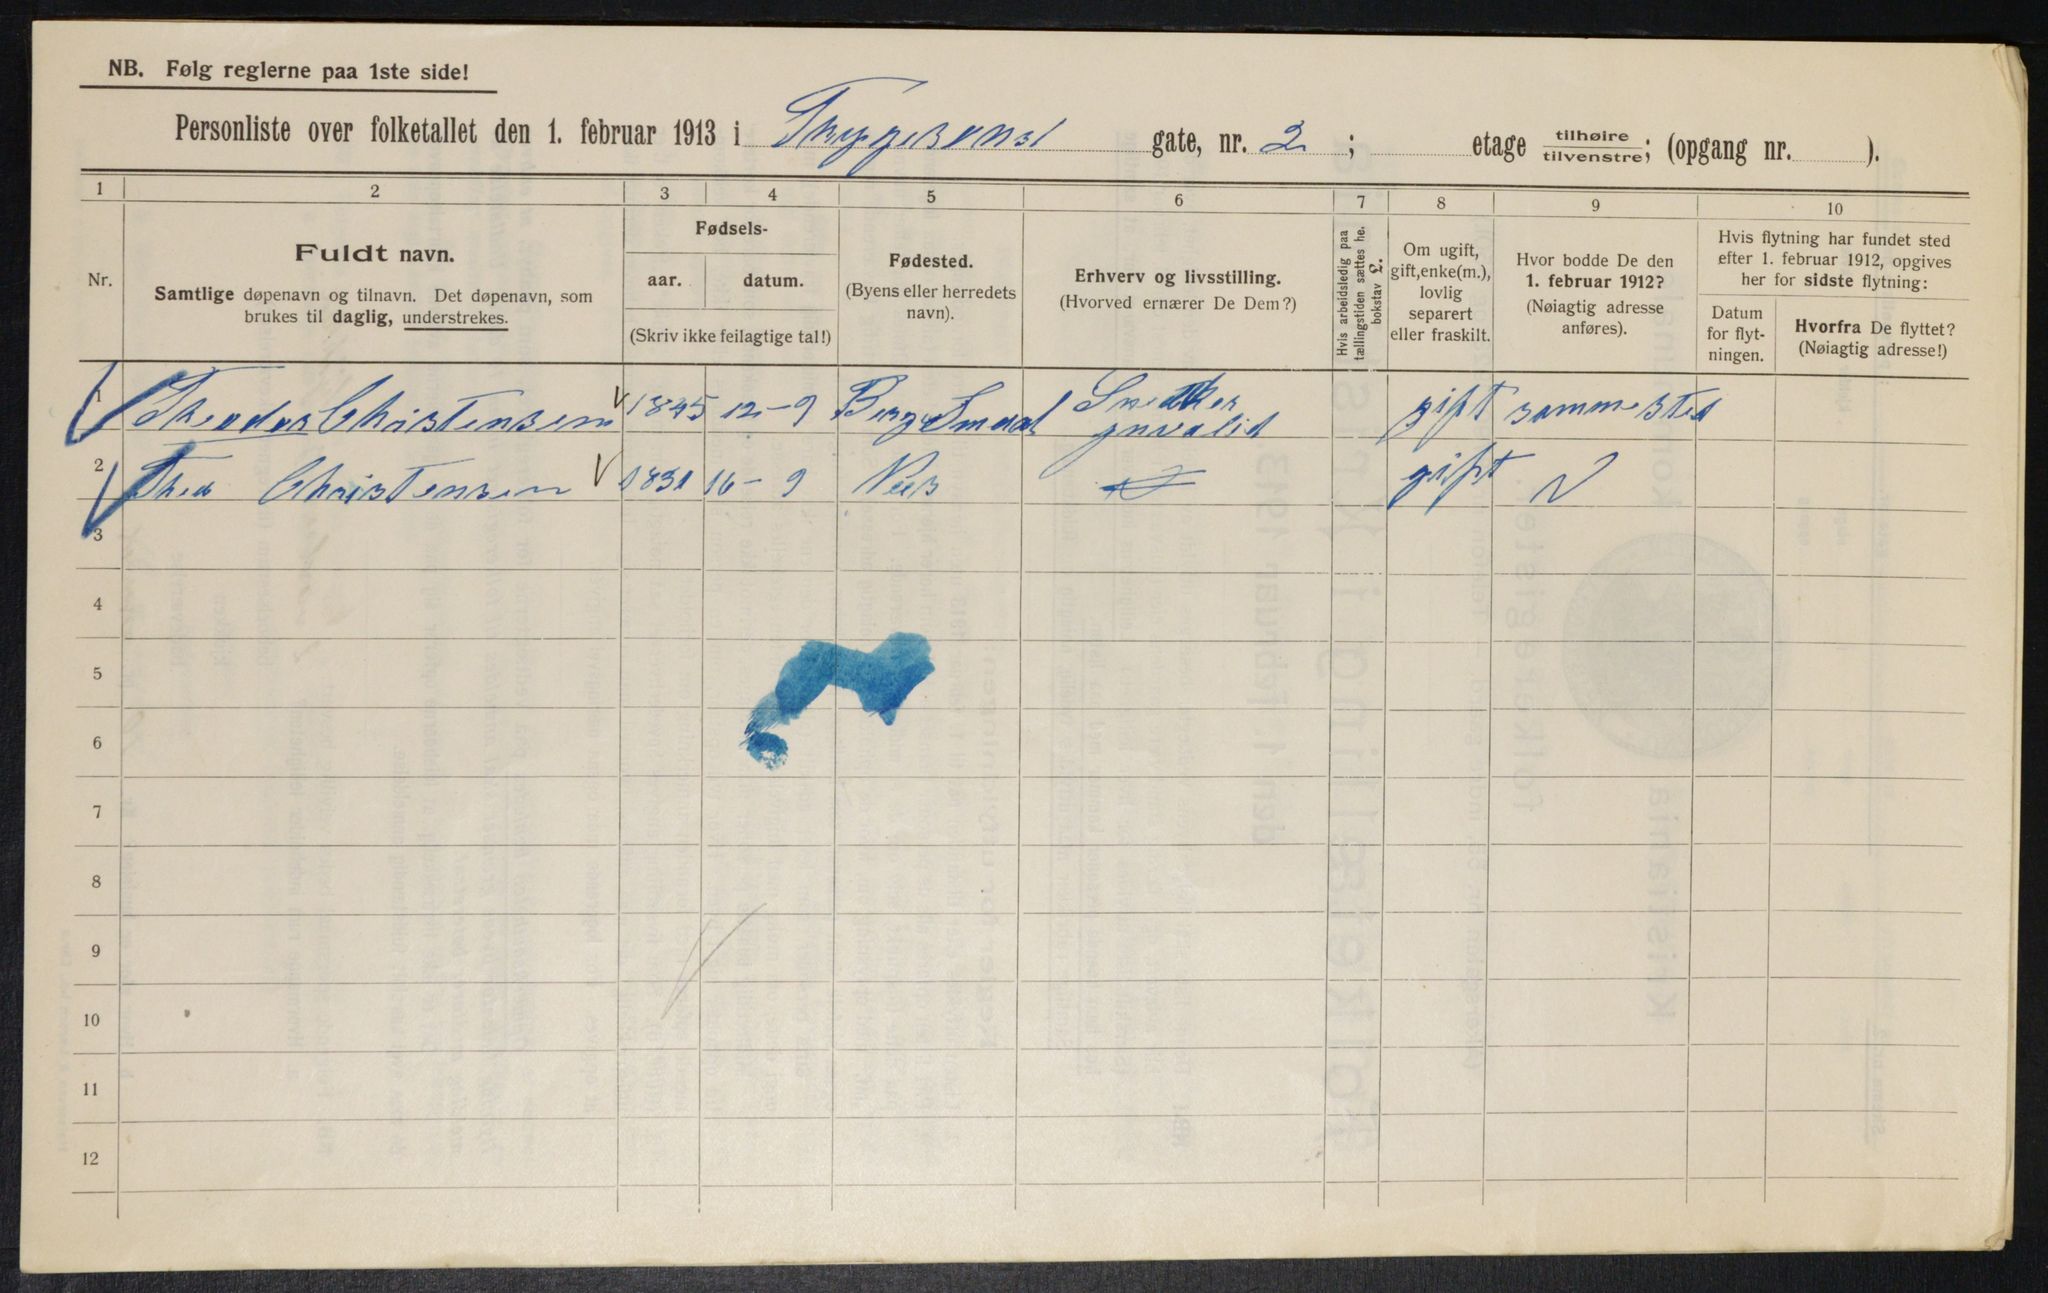 NB. Følg reglerne paa 1ste side!
Personliste over folketallet den 1. februar 1913 i gate, nr. 2 ; etage tilhøire tilvenstre; (opgang nr. ).
1 2 3 4 5 6 7 8 9 10
Nr.
Fuldt navn.
Samtlige døpenavn og tilnavn. Det døpenavn, som
brukes til daglig, understrekes.
Fødsels-
aar. datum.
(Skriv ikke feilagtige tal!)
Fødested.
(Byens eller herredets
navn).
Erhverv og livsstilling.
(Hvorved ernærer De Dem?)
Hvis arbeidsledig paa
tællingstiden sættes he.
bokstav L.
Om ugift,
gift, enke(m.),
lovlig
separert
eller fraskilt.
Hvor bodde De den
1. februar 1912?
(Nøiagtig adresse
anføres).
Hvis flytning har fundet sted
efter 1. februar 1912, opgives
her for sidste flytning:
Datum
for flyt-
ningen.
Hvorfra De flyttet?
(Nøiagtig adresse!)
1 Theodor Christensen 12-9 Snedker gift sammested
invalid
2 Christensen 16-9 gift
3
4
5
6
7
8
9
10
11
12